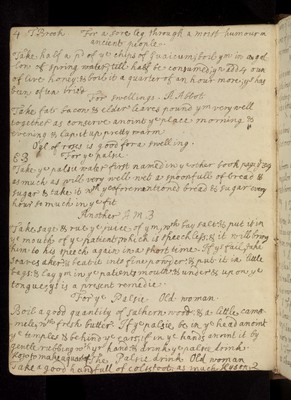 4 J Brook For a sore leg through a moist humour in
ancient people
Take half a pd of ye chips of Guaicum, boyl ym in a gal
lon of spring water till half be consumed, yn add 4 oun
of live honey & boil it a quarter of an hour more, yt has
been often tried
For swellings A Abbot
Take fat bacon & elder leaves pound ym very well
together as conserve anoint ye place morning &
evening & lap it up pretty warm
Oyl of roses is good for a swelling
E B For ye palsie
Take ye palsie water first named in ye other book page
as much as will very well wet a spoonfull of bread &
sugar & take it wth ye forementioned bread & sugar every
hour so much in ye fit
Another A M B
Take sage & rue ye juice of ym, wth bay salt & put it in
ye mouth of ye patient which is speechless, & it will bring
him to his speech again in a short time. If yt fail, take
tongue yt is a present remedie
For ye Palsie Old woman
Boil a good quantity of suthernwood & a little camo
mele, wth fresh butter If ye palsie be in ye head anoint
ye temples & behind ye ears, if in ye hands anoint it by
gentle rubbing wth yr hand & drink ye palsie drink
The Palsie drink Old woman
Take a good handfull of as much